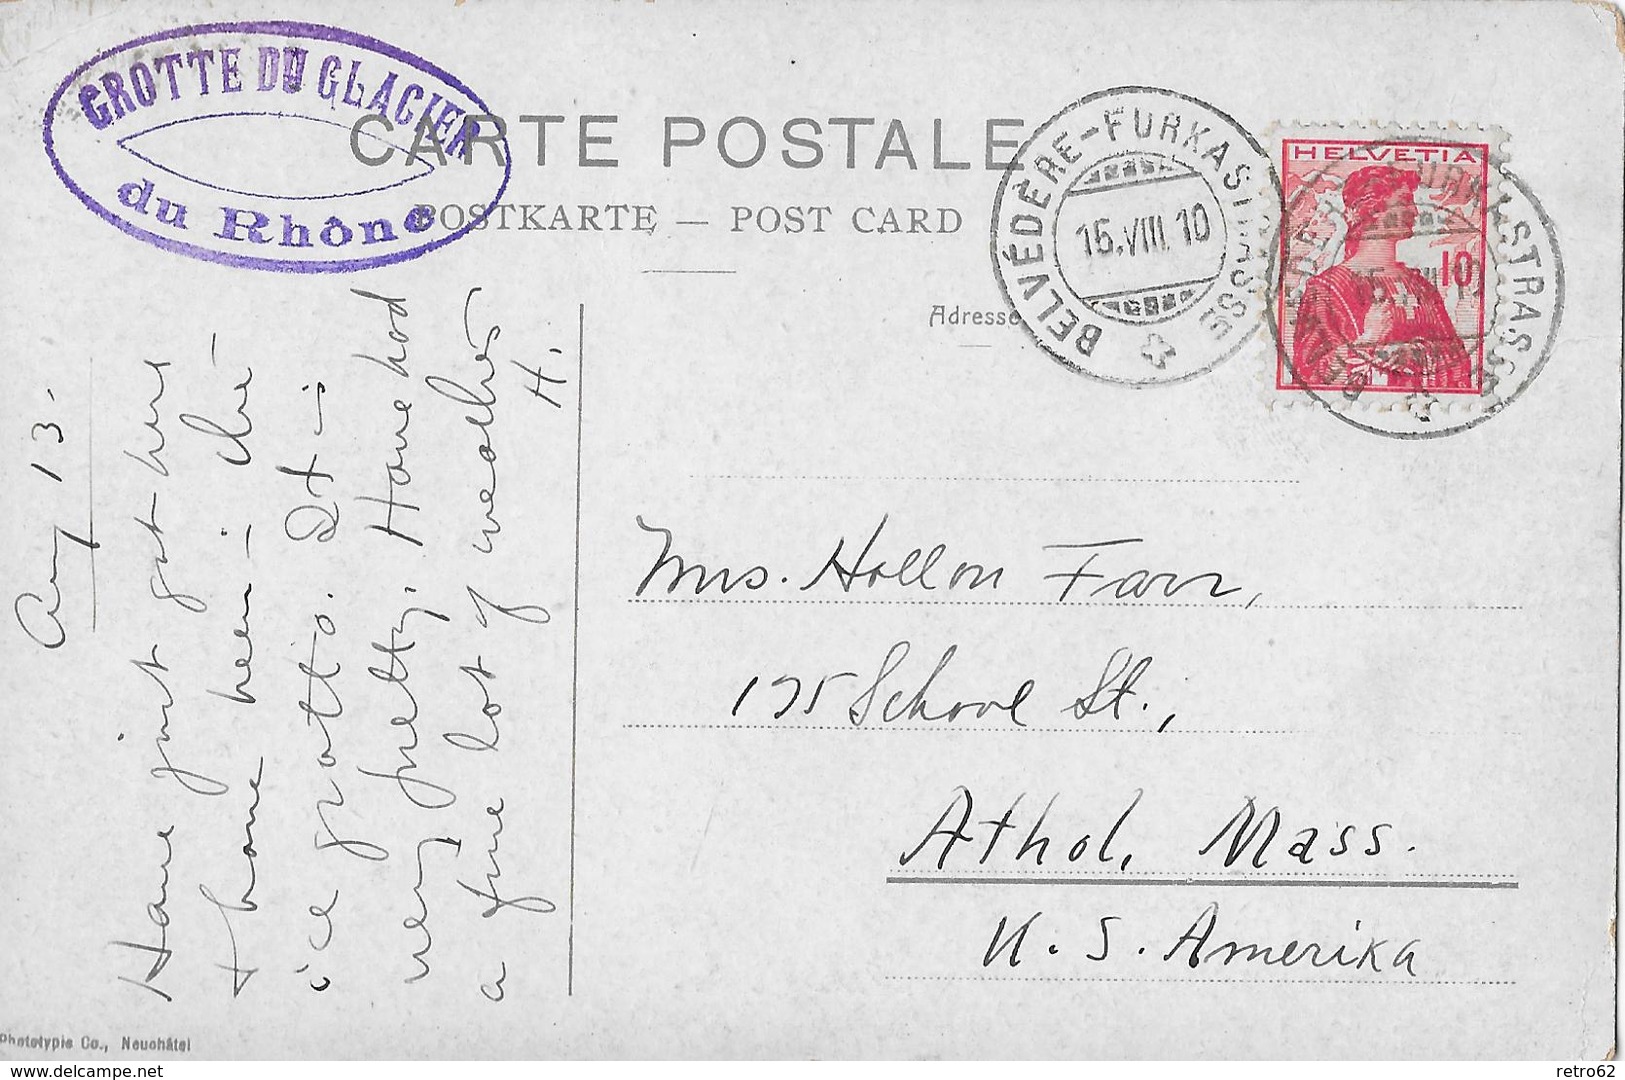 GROTTE DU GLACIER
du Rhône
CARTE POSTALE
POSTKARTE — POST CARD
Adresse
BELVÉDÈRE-FURKASTRASSE
15.VIII.10
HELVETIA
10
Aug 13.
Have just got here
& have been in the
ice grotto. It is
very pretty. Have had
a fine lot of weather
H.
Mrs. Hollon Farr,
175 School St.,
Athol, Mass.
U. S. Amerika
Phototypie Co., Neuchâtel
www.delcampe.net
retro62